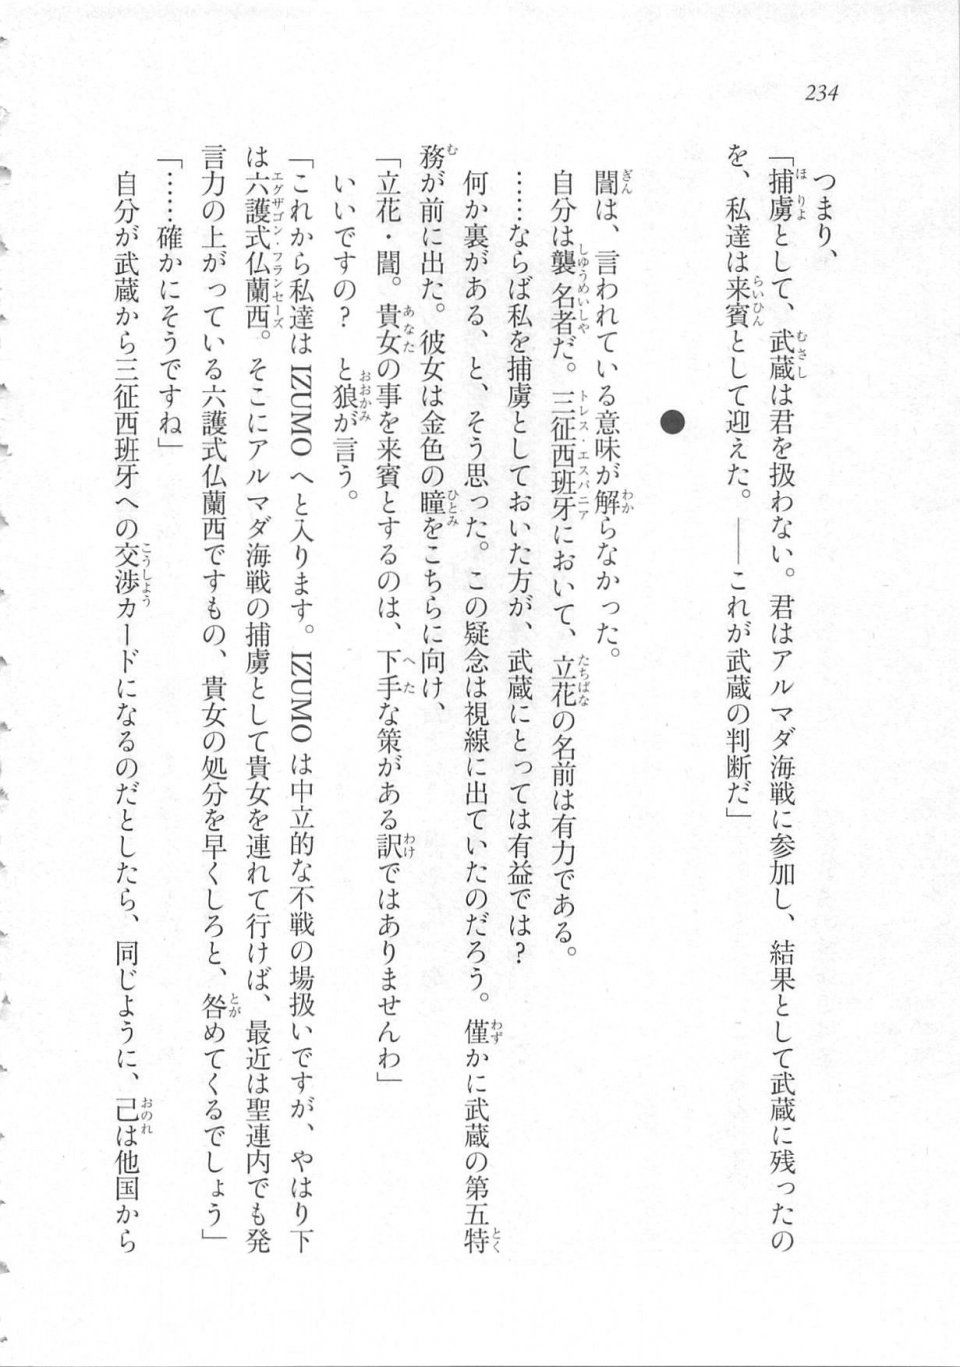 234
つまり、
「捕虜として、武蔵は君を扱わない。君はアルマダ海戦に参加し、結果として武蔵に残ったの
を、私達は来賓として迎えた。――これが武蔵の判断だ」
●
誾は、言われている意味が解らなかった。
自分は襲名者だ。三征西班牙において、立花の名前は有力である。
……ならば私を捕虜としておいた方が、武蔵にとっては有益では？
何か裏がある、と、そう思った。この疑念は視線に出ていたのだろう。僅かに武蔵の第五特
務が前に出た。彼女は金色の瞳をこちらに向け、
「立花・誾。貴女の事を来賓とするのは、下手な策がある訳ではありませんわ」
いいですの？　と狼が言う。
「これから私達は IZUMO へと入ります。IZUMO は中立的な不戦の場扱いですが、やはり下
は六護式仏蘭西。そこにアルマダ海戦の捕虜として貴女を連れて行けば、最近は聖連内でも発
言力の上がっている六護式仏蘭西ですもの、貴女の処分を早くしろと、咎めてくるでしょう」
「……確かにそうですね」
自分が武蔵から三征西班牙への交渉カードになるのだとしたら、同じように、己は他国から